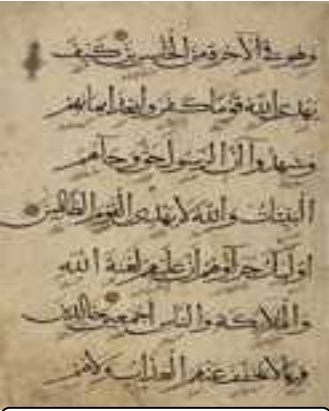 وهو في الآخرة من الخاسرين كيف
يهدي الله قوما كفروا بعد ايمانهم
وشهدوا ان الرسول حق وجاهم
البينات والله لا يهدي القوم الظالمين
اوليك جزآؤهم ان عليهم لعنة الله
والملائكة والناس اجمعين خالدين
فيها لا يخفف عنهم العذاب ولا هم